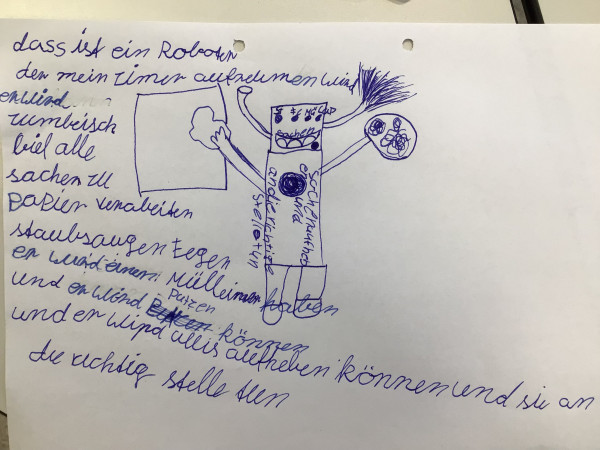 dass ist ein Roboter
der mein zimer aufreumen wird
er wird
zumbeisch
biel alle
sachen zu
Papier verarbeiten
staubsaugen fegen
er wird einen Mülleimer haben
und er wird putzen können
und er wird alles aufheben können und sie an
die richtig stelle tun
und
an die richtige
stelle tun